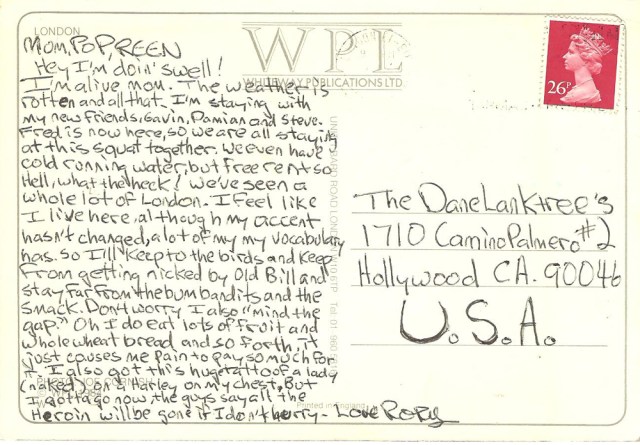 LONDON
Mom, Pop, REEN
Hey I'm doin' swell!
I'm alive mom. The weather is
rotten and all that. I'm staying with
my new friends, Gavin, Damian and Steve.
Fred is now here, so we are all staying
at this squat together. We even have
cold running water, but free rent so
Hell, what the heck! We've seen a
whole lot of London. I feel like
I live here, although my accent
hasn't changed, a lot of my my vocabulary
has. So I'll keep to the birds and keep
from getting nicked by Old Bill and
stay far from the bum bandits and the
smack. Don't worry I also "mind the
gap." Oh I do eat lots of fruit and
whole wheat bread and so forth, it
just causes me pain to pay so much for
it. I also got this huge tattoo of a lady
(naked) on a Harley on my chest, But
I gotta go now, the guys say all the
Heroin will be gone if I don't hurry - Love Rory
WPL
WHITEWAY PUBLICATIONS LTD
ROAD LONDON
Tel 01
Printed in England
26P
The Dane Lanktree's
1710 Camino Palmero #2
Hollywood CA. 90046
U.S.A.